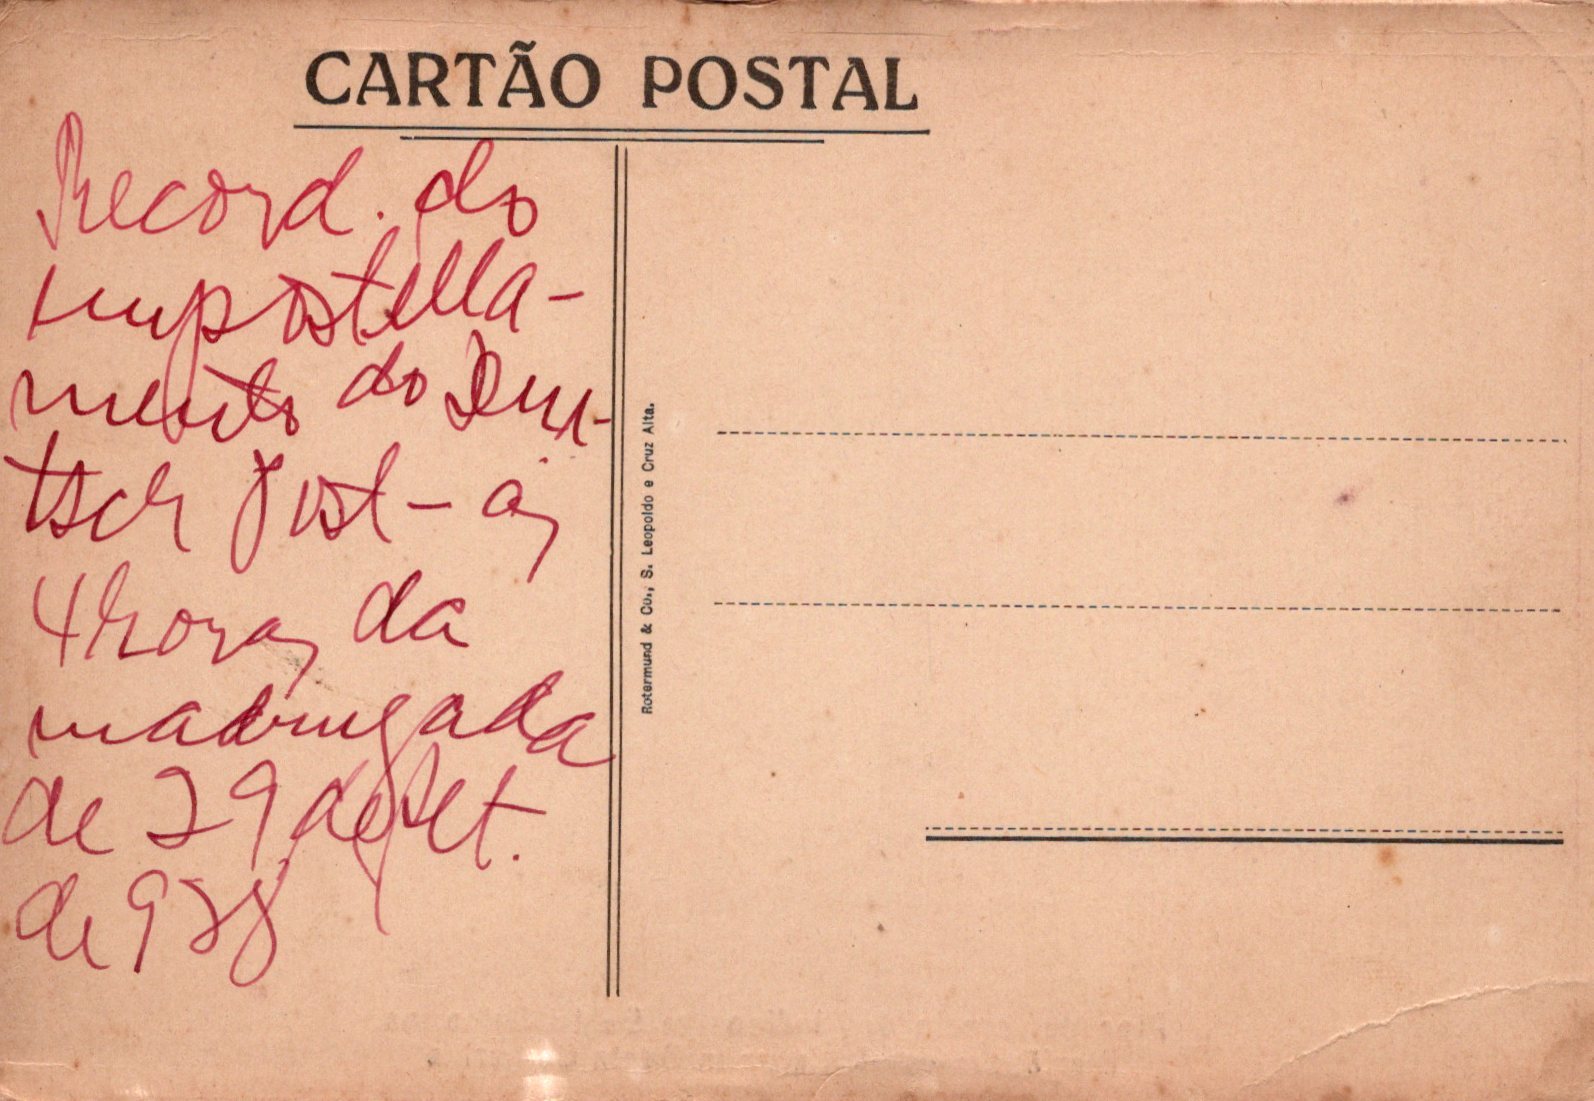 CARTÃO POSTAL
Record. do
empostella-
mento do Deu-
tsch Post - às
4 horas da
madrugada
de 29 de Set.
de 928
Rotermund & Co., S. Leopoldo e Cruz Alta.